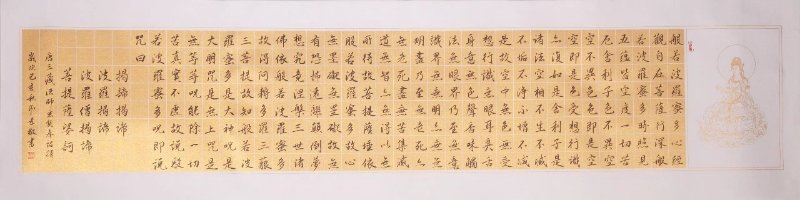 般若波羅蜜多心經
觀自在菩薩行深般
若波羅蜜多時照見
五蘊皆空度一切苦
厄舍利子色不異空
空不異色色即是空
空即是色受想行識
亦復如是舍利子是
諸法空相不生不滅
不垢不淨不增不減
是故空中無色無受
想行識無眼耳鼻舌
身意無色聲香味觸
法無眼界乃至無意
識界無無明亦無無
明盡乃至無老死亦
無老死盡無苦集滅
道無智亦無得以無
所得故菩提薩埵依
般若波羅蜜多故心
無罣礙無罣礙故無
有恐怖遠離顛倒夢
想究竟涅槃三世諸
佛依般若波羅蜜多
故得阿耨多羅三藐
三菩提故知般若波
羅蜜多是大神咒是
大明咒是無上咒是
無等等咒能除一切
苦真實不虛故說般
若波羅蜜多咒即說
咒曰
揭諦揭諦
波羅揭諦
波羅僧揭諦
菩提薩婆訶
唐三藏法師玄奘奉詔譯
歲次己亥秋月敬書